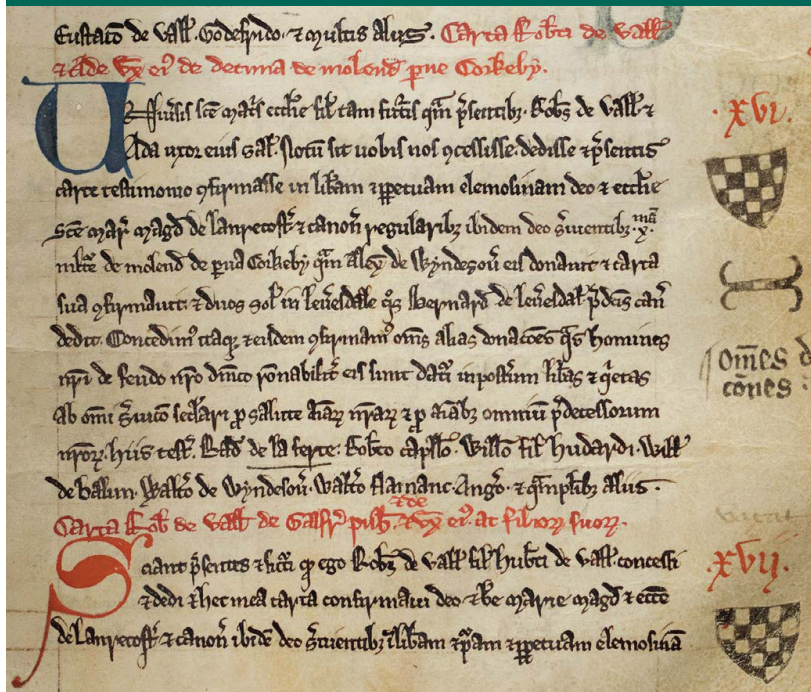 Eustacio de vall. Godefrido. ⁊ multis aliis. Carta Rob̃ti de vall̃
⁊ Ade vx̃ ei᷒ de decima de molend̃ pue Corkeby.
Uniũsis sc̃e mat̃s ecc̃lie fil̃ tam fut̃is qm̃ p̃sentibꝫ. Rob̃s de vall̃ ⁊
Ada uxor eius sal̃. Notũ sit uobis nos ꝯcessisse. dedisse ⁊ p̃sentis
carte testimonio ꝯfirmasse in lib̃am ⁊ ꝑpetuam elemosinam deo ⁊ ecc̃lie
Sc̃e mar̃ magd̃ de lanrecost̃ ⁊ canoñ regularibꝫ ibidem deo s̃uientibꝫ.
de molend̃ de pua Corkeby qm̃ Alex̃ de Wyndesou᷒ eis donauit ⁊ carta
sua ꝯfirmauit. ⁊ duos sol̃ in leu᷒esdale q̃s Bernard̃ de leu᷒esdal̃ p̃dcĩs cañ
dedit. Concedim᷒ itaqꝫ ⁊ eisdem ꝯfirmam᷒ om̃s alias donac̃oes q̃s homines
nr̃i de feudo nr̃o dm̃co rõnabilit̃ eis sunt dat̃i inpost̃um lib̃as ⁊ q̃etas
ab omi s̃uicio sec̃lari ꝓ salute aĩaꝝ nr̃aꝝ ⁊ ꝓ aĩabꝫ omniũ p̃decessorum
nr̃oꝝ. hiis test̃. Rad̃ de la ferte. Rob̃to cap̃llo. Will̃o fil̃ hudardi. Will̃
de balun. Walt̃o de Wyndesou᷒. Walt̃o flamanc. Ang̃o. ⁊ q̃mpl̃ibꝫ aliis.
Carta Rob̃ de vall̃ de Galfr̃ pu᷒b̃. ⁊ de vx̃ ei᷒. ac filioꝝ suoꝝ.
Sciant p̃sentes ⁊ fut̃i qꝫ ego Rob̃s de vall̃ fil̃ hub̃ti de vall̃. concessi
⁊ dedi ⁊ hec mea carta confirmaui deo ⁊ b̃e marie magd̃ ⁊ ecc̃e
de lanrecost̃ ⁊ canoñ ibid̃e deo s̃uientibꝫ ĩ lib̃am ⁊ pu᷒am ⁊ ꝑpetuam elemosinã
.xvi.
om̃es
cc̃ones
.xvii.